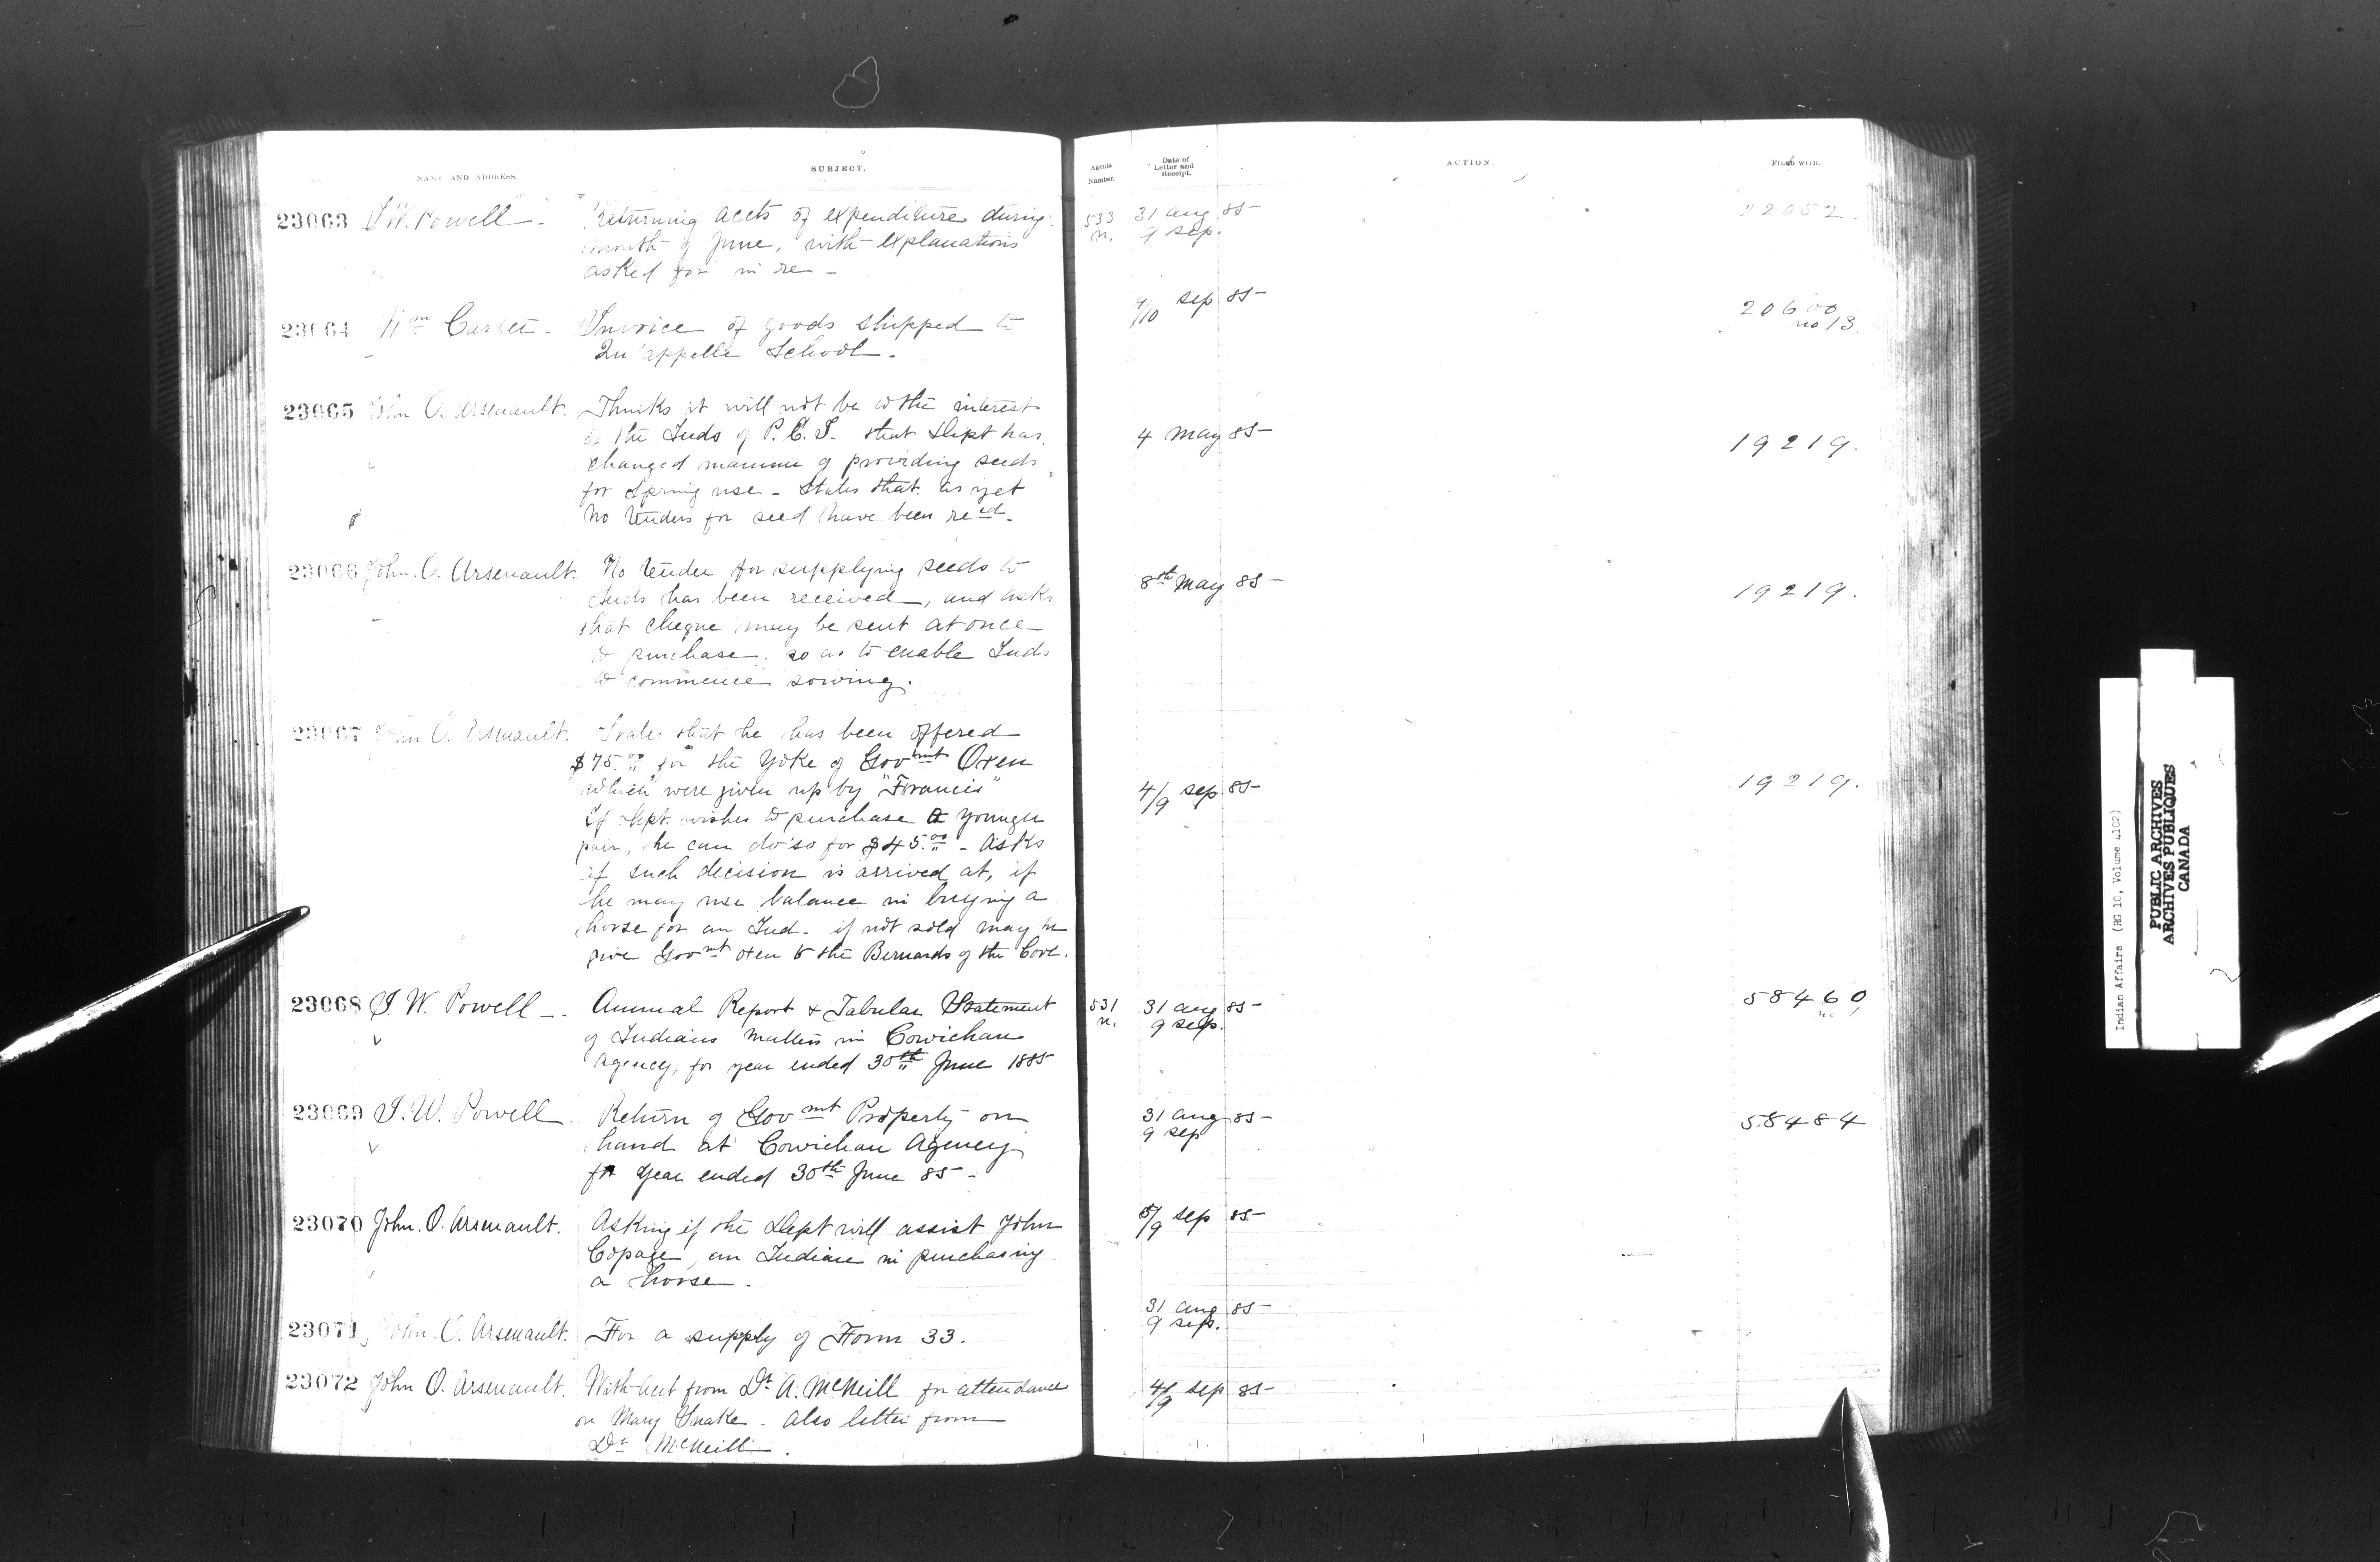 NAME AND ADDRESS.
SUBJECT.
Agents Number.
Date of Letter and Receipt.
ACTION.
FILED WITH.
23063 I. W. Powell - Returning accts of expenditure during
month of June, with explanations
asked for in re -
533 n. 31 aug 85
9 sep.
22052.
23064 Wm - Invoice of goods shipped to
Qu'appelle School.
9/10 sep 85
20600
no 13
23065 John O. Arsenault. Thinks it will not be to the interest
of the Inds of P.E.I. that Dept has
changed manner of providing seeds
for Spring use - States that as yet
no tenders for seed have been recd.
4 May 85
19219.
23066 John. O. Arsenault. No tender for supplying seeds to
Inds has been received, and asks
that cheque may be sent at once
to purchase so as to enable Inds
to commence sowing.
8th May 85
19219.
23067 John O. Arsenault. States that he has been offered
$75.00 for the Yoke of Govmnt Oxen
which were given up by "Francis"
If Dept. wishes to purchase a younger
pair, he can do so for $45.00 - Asks
if such decision is arrived at, if
he may use balance in buying a
horse for an Ind. if not sold may he
give Govmnt oxen to the Bernards of the Cove.
4/9 sep 85
19219.
23068 I. W. Powell - Annual Report & Tabular Statement
of Indians Matters in Cowichan
Agency, for year ended 30th June 1885
531 n. 31 aug 85
9 sep.
58460
23069 I. W. Powell Return of Govmnt Property on
hand at Cowichan Agency
for year ended 30th June 85 -
31 aug 85
9 sep
58484
23070 John. O. Arsenault. Asking if the Dept will assist John
Copage, an Indian in purchasing
a horse.
5/9 sep 85
23071 John. O. Arsenault. For a supply of Form 33.
31 aug 85
9 sep.
23072 John O. Arsenault. With acct from Dr. A. McNeill for attendance
on Mary Snake - Also letter from
Dr McNeill.
4/9 sep 85
Indian Affairs (RG 10, Volume 4102)
PUBLIC ARCHIVES
ARCHIVES PUBLIQUES
CANADA